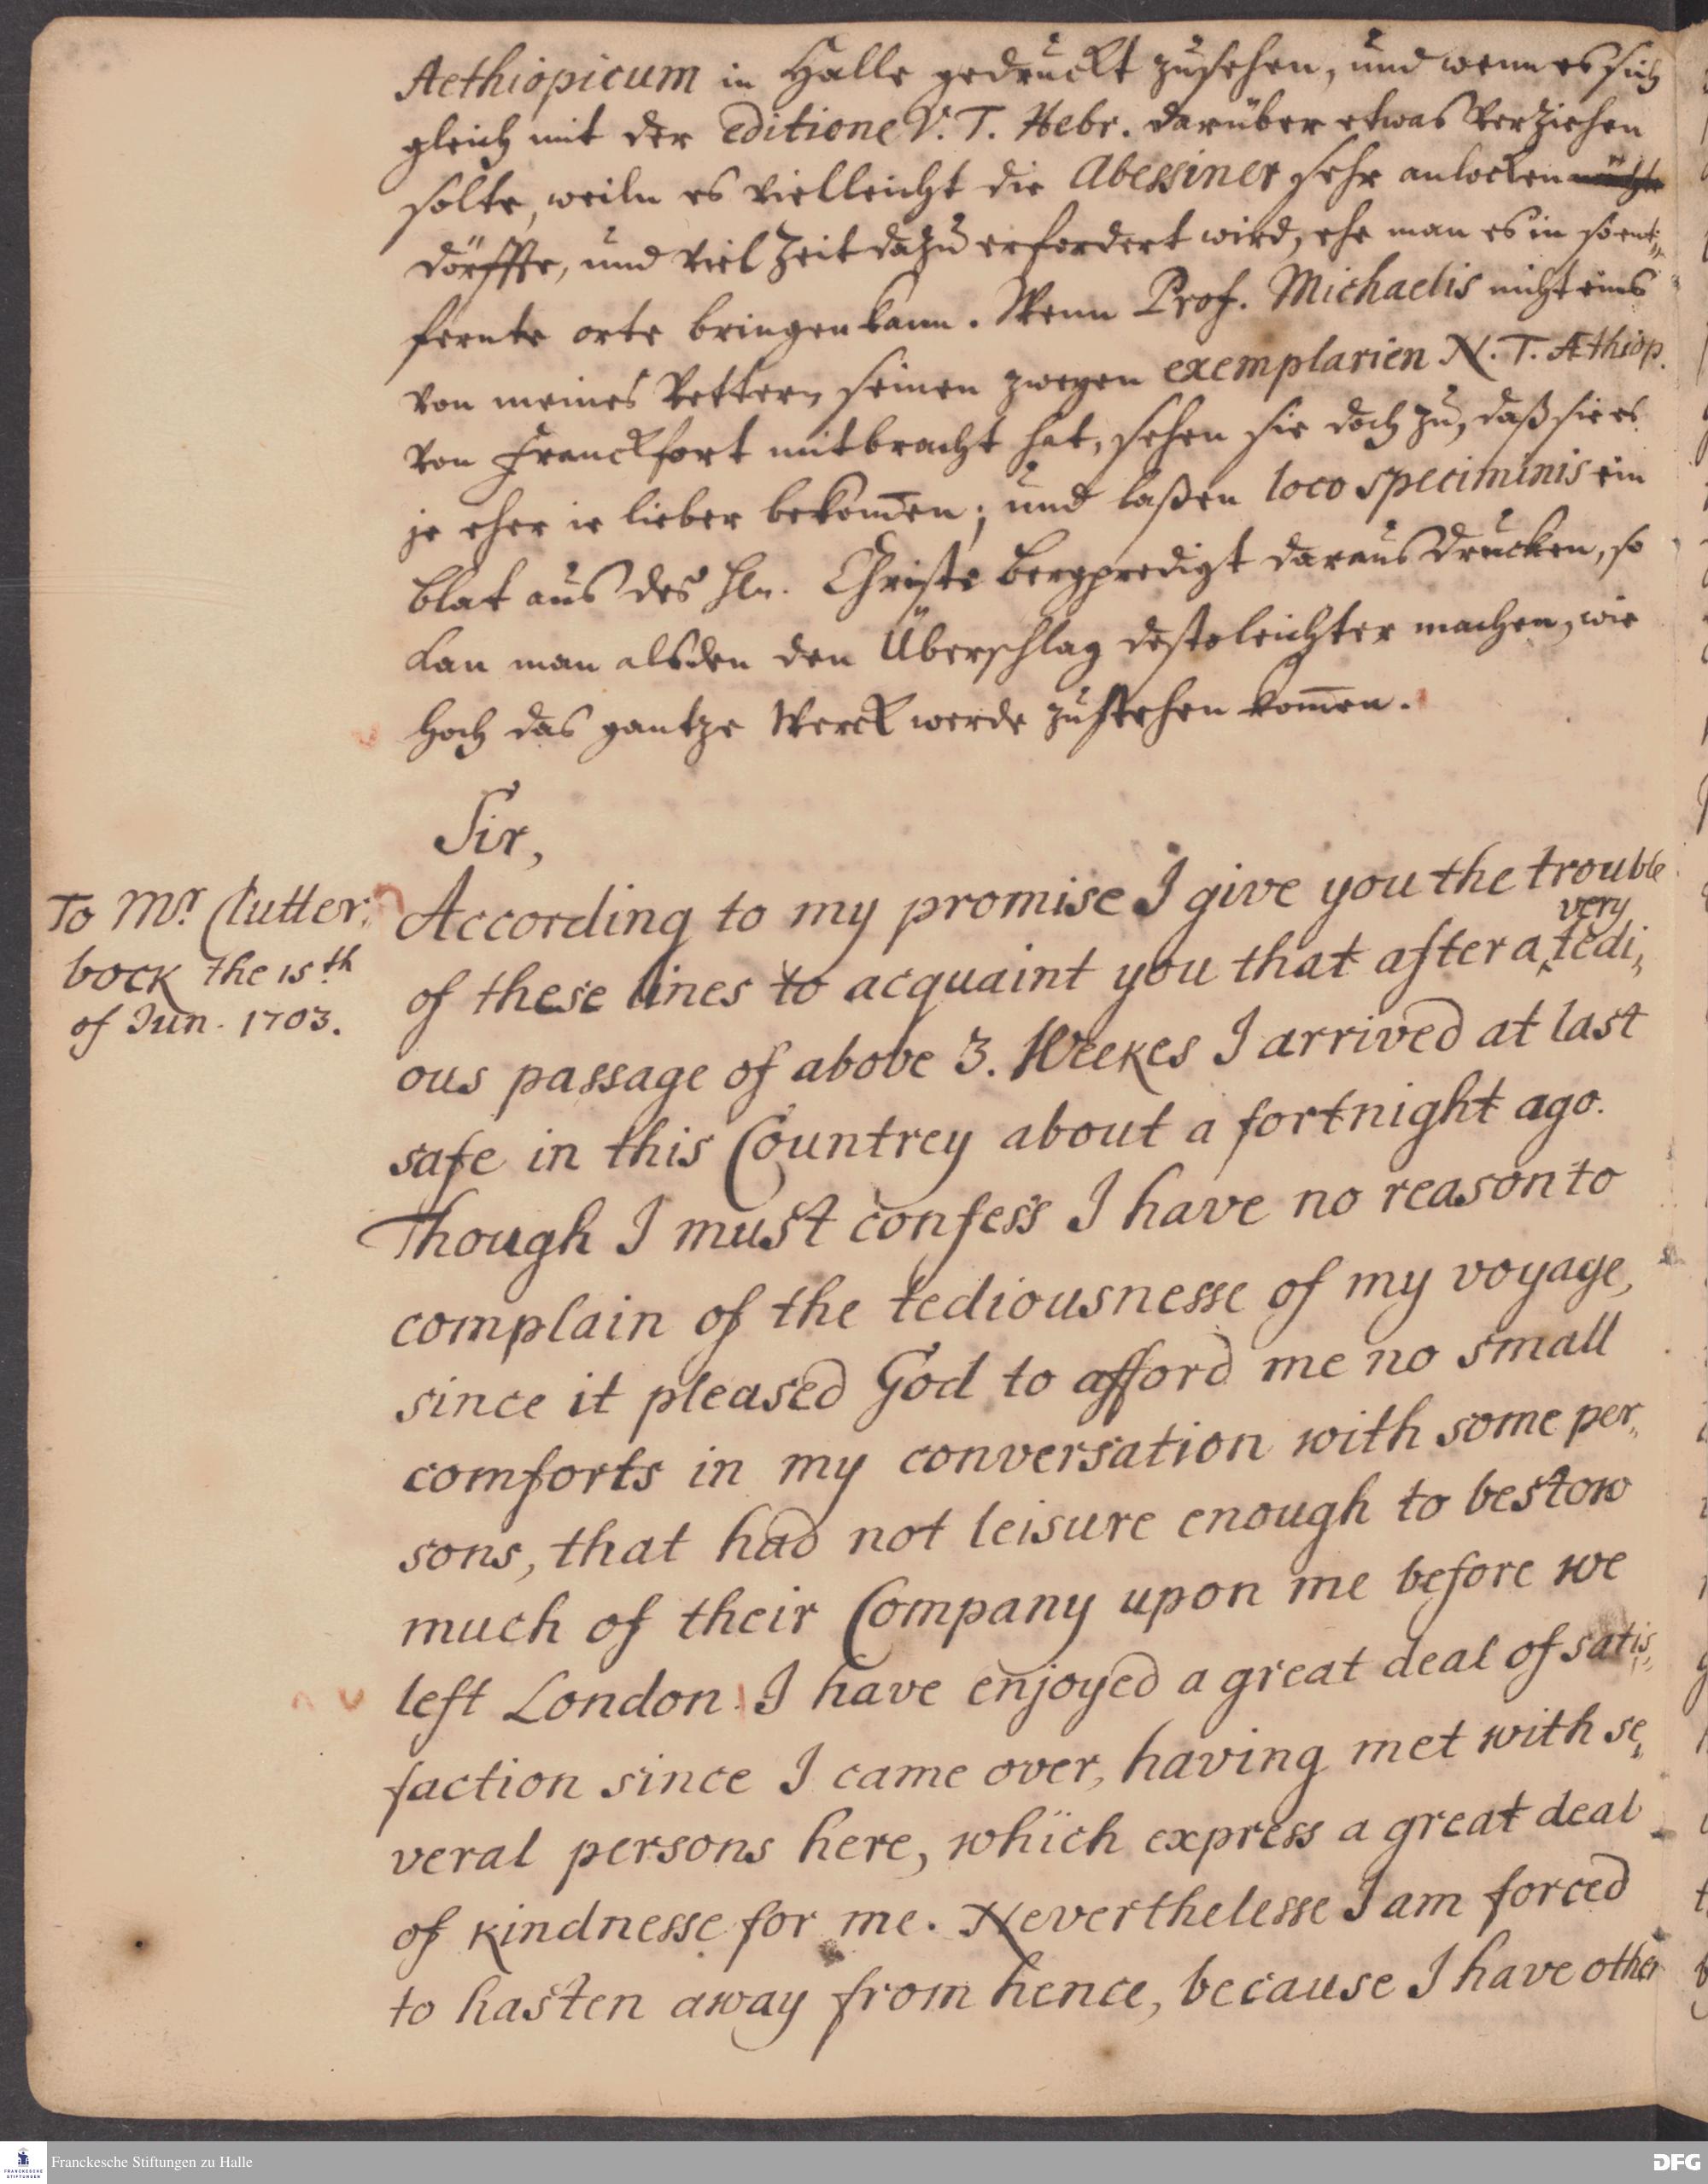 Aethiopicum in Halle gedruckt zusehen, und wenn es sich
gleich mit der editione V. T. Hebr. darüber etwas verziehen
solte, weiln es vielleicht die Abessiner sehr anlocken möchte
dörffte, und viel Zeit dazu erfordert wird, ehe man es in so ent„
fernte orte bringen kann. Wenn Prof. Michaelis nicht eins
von meines Vettern seinen zweyen exemplarien N. T. Æthiop.
von Franckfort mitbracht hat, sehen sie doch zu, daß sie es
je eher je lieber bekom̄en; und laßen loco speciminis ein
blat aus des Hln. Christi bergpredigt daraus drucken, so
kan man alsden den Überschlag desto leichter machen, wie
hoch das gantze Werck werde zu stehen kom̄en.
Sir,
To Mr. Clutter„
bock the 15th
of Jun. 1703.
According to my promise I give you the trouble
of these lines to acquaint you that after a very tedi„
ous passage of above 3. Weekes I arrived at last
safe in this Countrey about a fortnight ago.
Though I must confess I have no reason to
complain of the tediousnesse of my voyage,
since it pleased God to afford me no small
comforts in my conversation with some per„
sons, that had not leisure enough to bestow
much of their Company upon me before we
left London. I have enjoyed a great deal of satis„
faction since I came over, having met with se„
veral persons here, which express a great deal
of kindnesse for me. Neverthelesse I am forced
to hasten away from hence, because I have other
FRANCKESCHE
STIFTUNGEN
Franckesche Stiftungen zu Halle
DFG